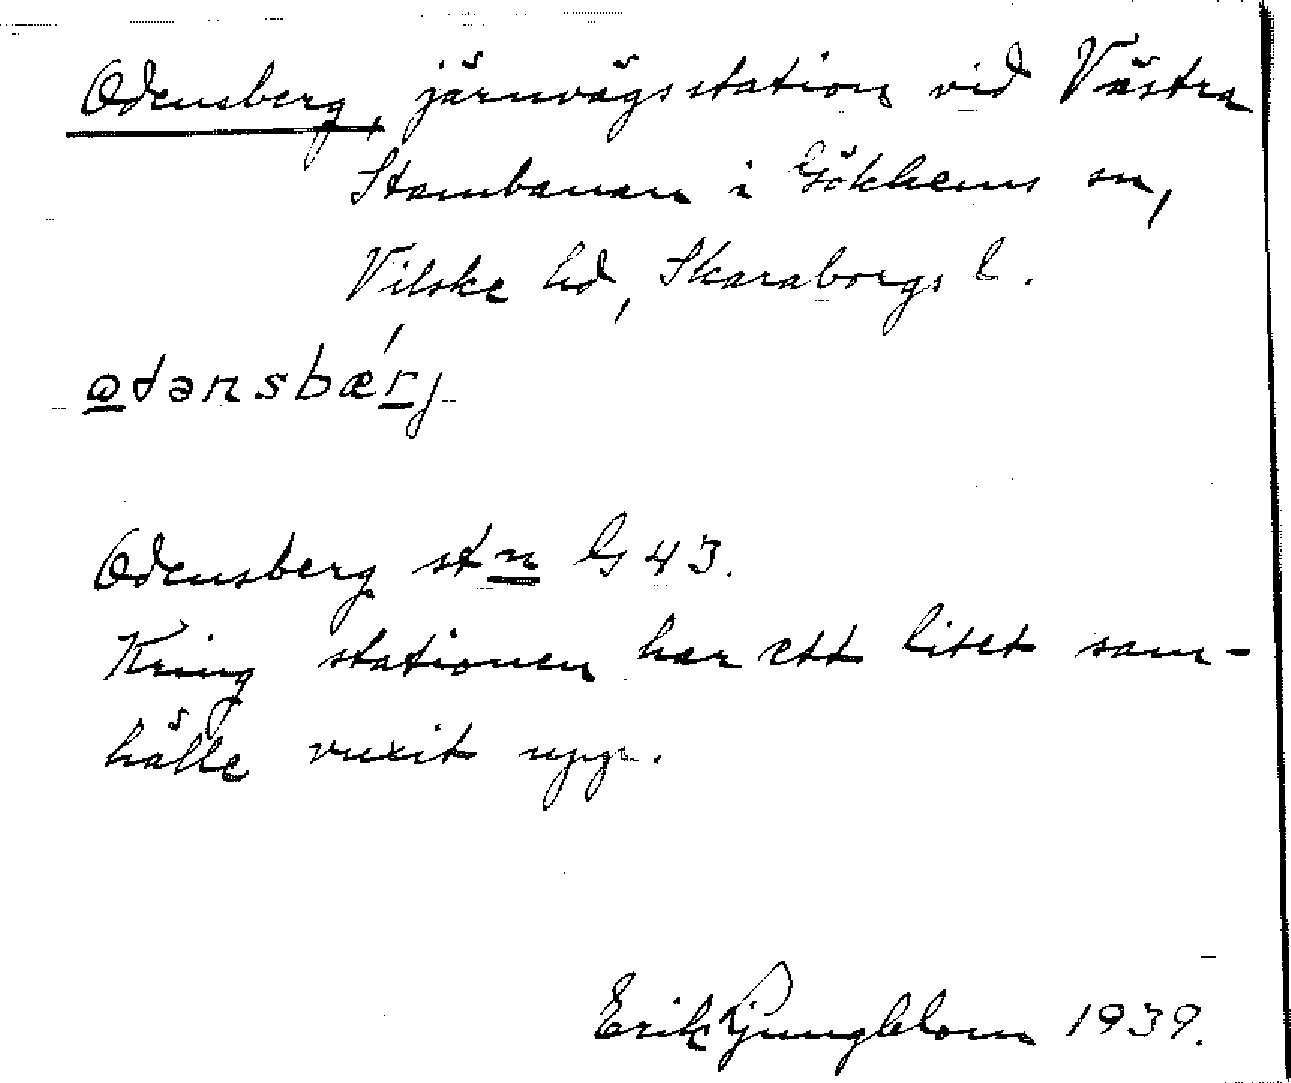 Odensberg, järnvägsstation vid Västra
Stambanan i Gökhems sn,
Vilske hd, Skaraborgs l.
odənsbæŕj
Odensberg stn G 43.
Kring stationen har ett litet sam-
hälle vuxit upp.
Erik Ljungblom 1939.